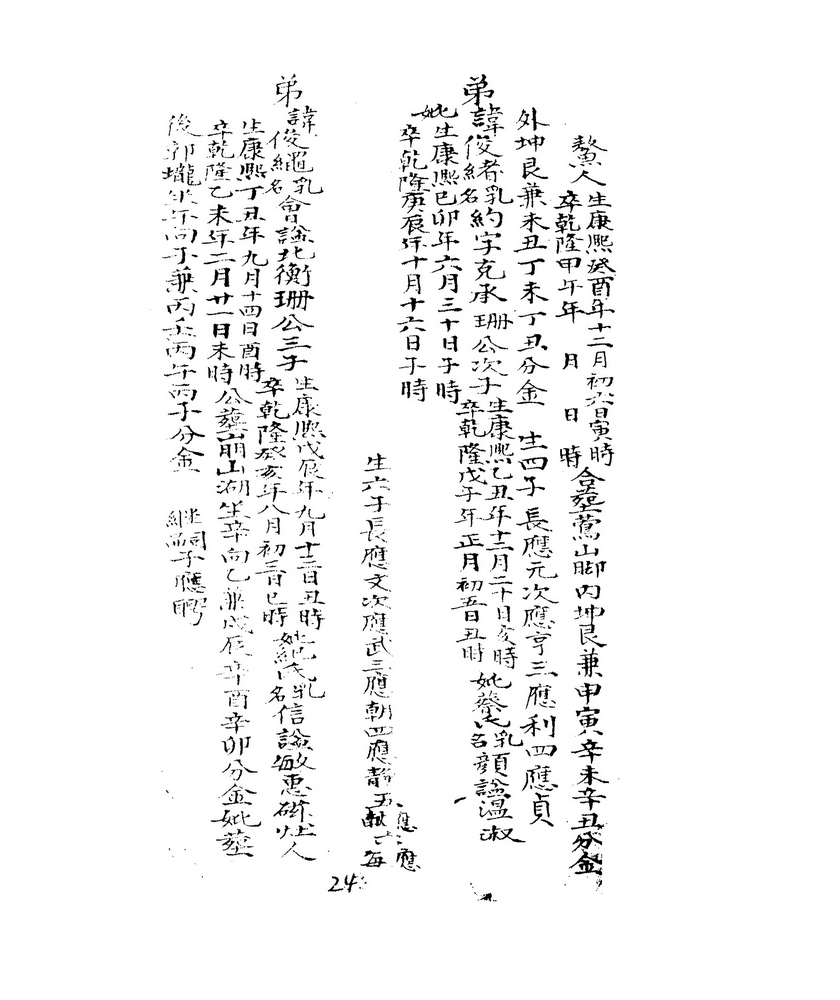 鰲人生康熙癸酉年十二月初六日寅時
卒乾隆甲午年 月 日 時合塟鶯山脚内坤艮兼申寅辛未辛丑分金
外坤艮兼未丑丁未丁丑分金 生四子長應元次應亨三應利四應貞
弟諱俊者乳名約字克承珊公次子生康熙乙丑年十二月二十日亥時
卒乾隆戊午年正月初五日丑時妣蔡氏乳名顏諡溫淑
妣生康熙己卯年六月三十日子時
卒乾隆庚辰年十月十六日子時
生六子長應文次應武三應朝四應靜五應猷六應每
弟諱俊繩乳名會諡北衡珊公三子生康熙戊辰年九月十二日丑時
卒乾隆癸亥年八月初三日巳時妣紀氏乳名信諡敏惠磁灶人
生康熙丁丑年九月十四日酉時
卒乾隆乙未年二月廿一日未時公塟崩山湖坐辛向乙兼戌辰辛酉辛卯分金妣塟
後郭壠坐午向子兼丙壬丙午丙子分金 継嗣子應聘
24